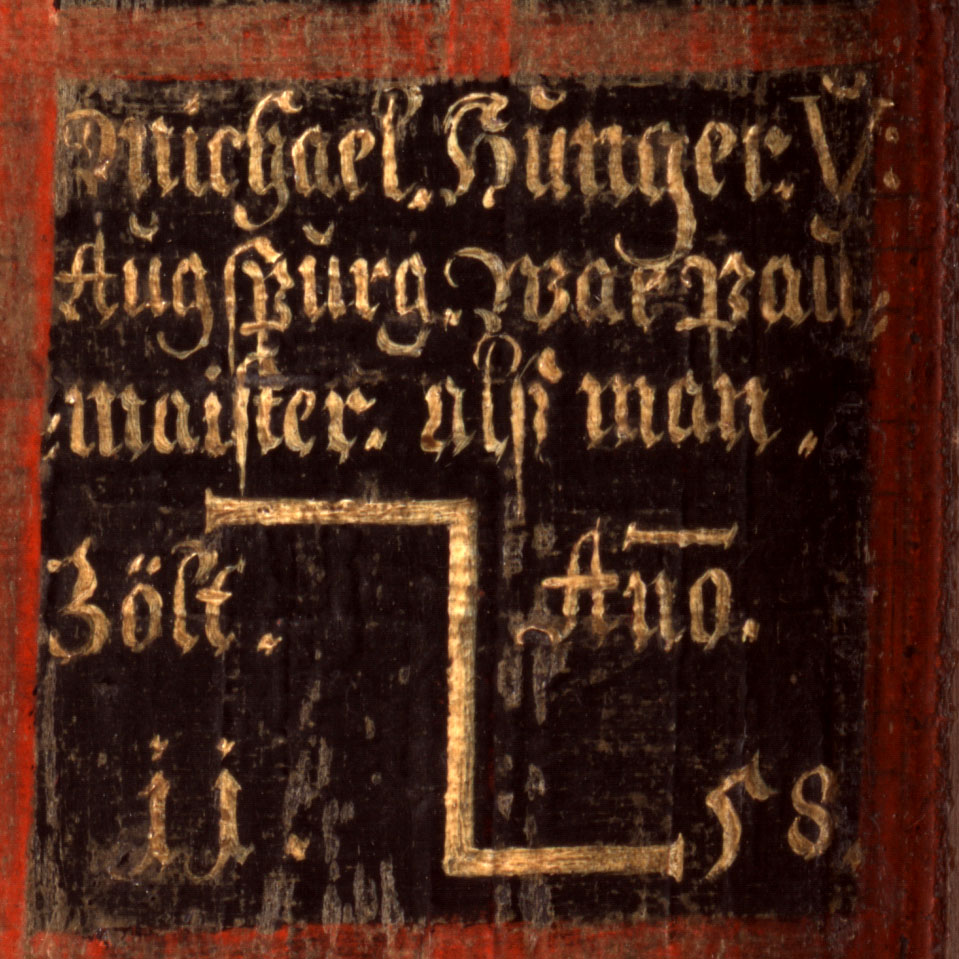 Michael. Hŭnger. V:
Aŭgspŭrg. war paŭ,
maister. alß man.
Zölt. Año.
ii. 58.